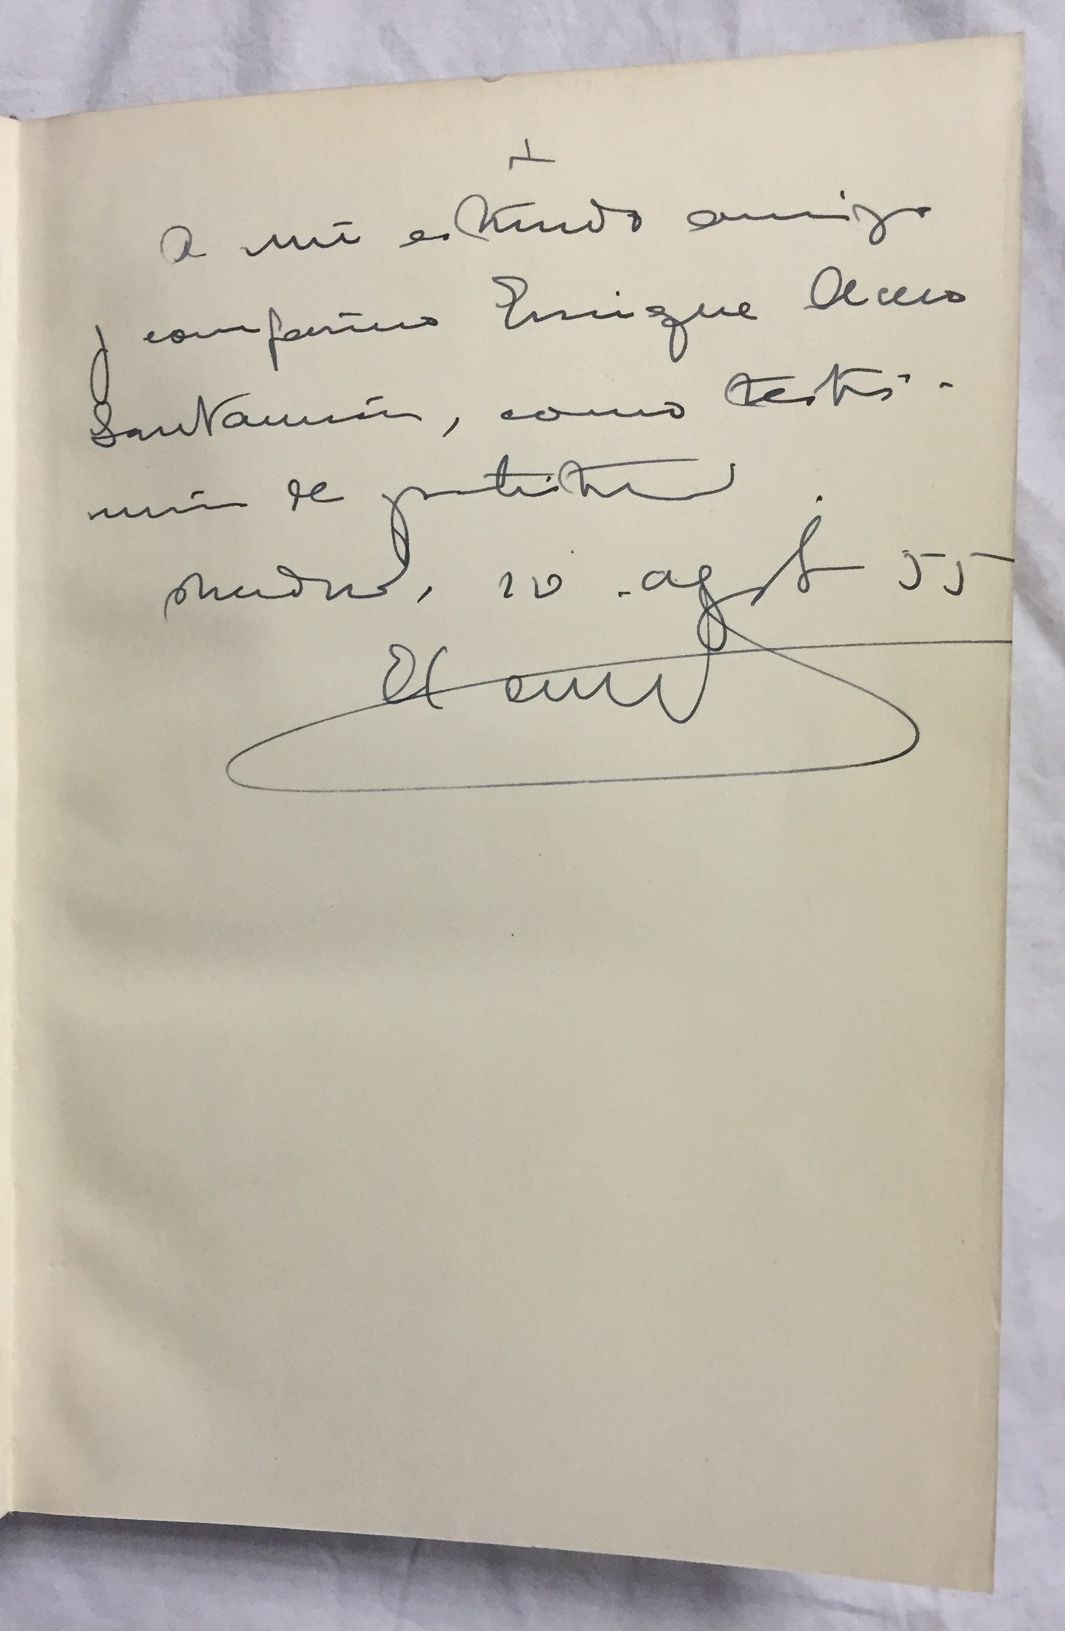 A mi estimado amigo
y compañero Enrique Acero
Santamaría, como testi-
monio de gratitud
Madrid, 10 agosto 55